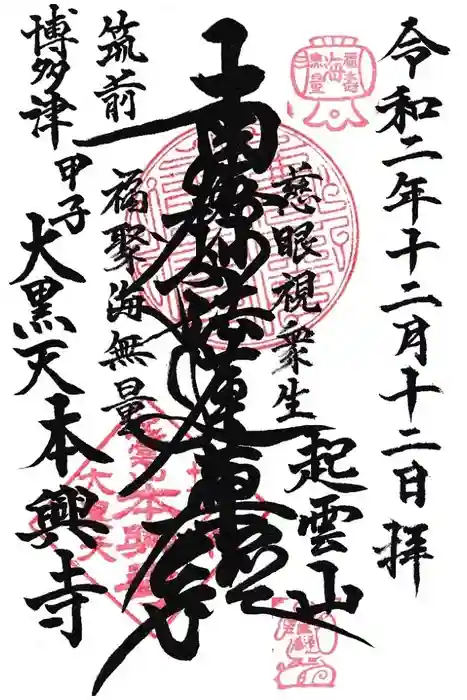 令和二年十二月十二日拝
起雲山
慈眼視衆生
南無妙法蓮華経
福聚海無量
筑前
博多津 甲子 大黒天 本興寺